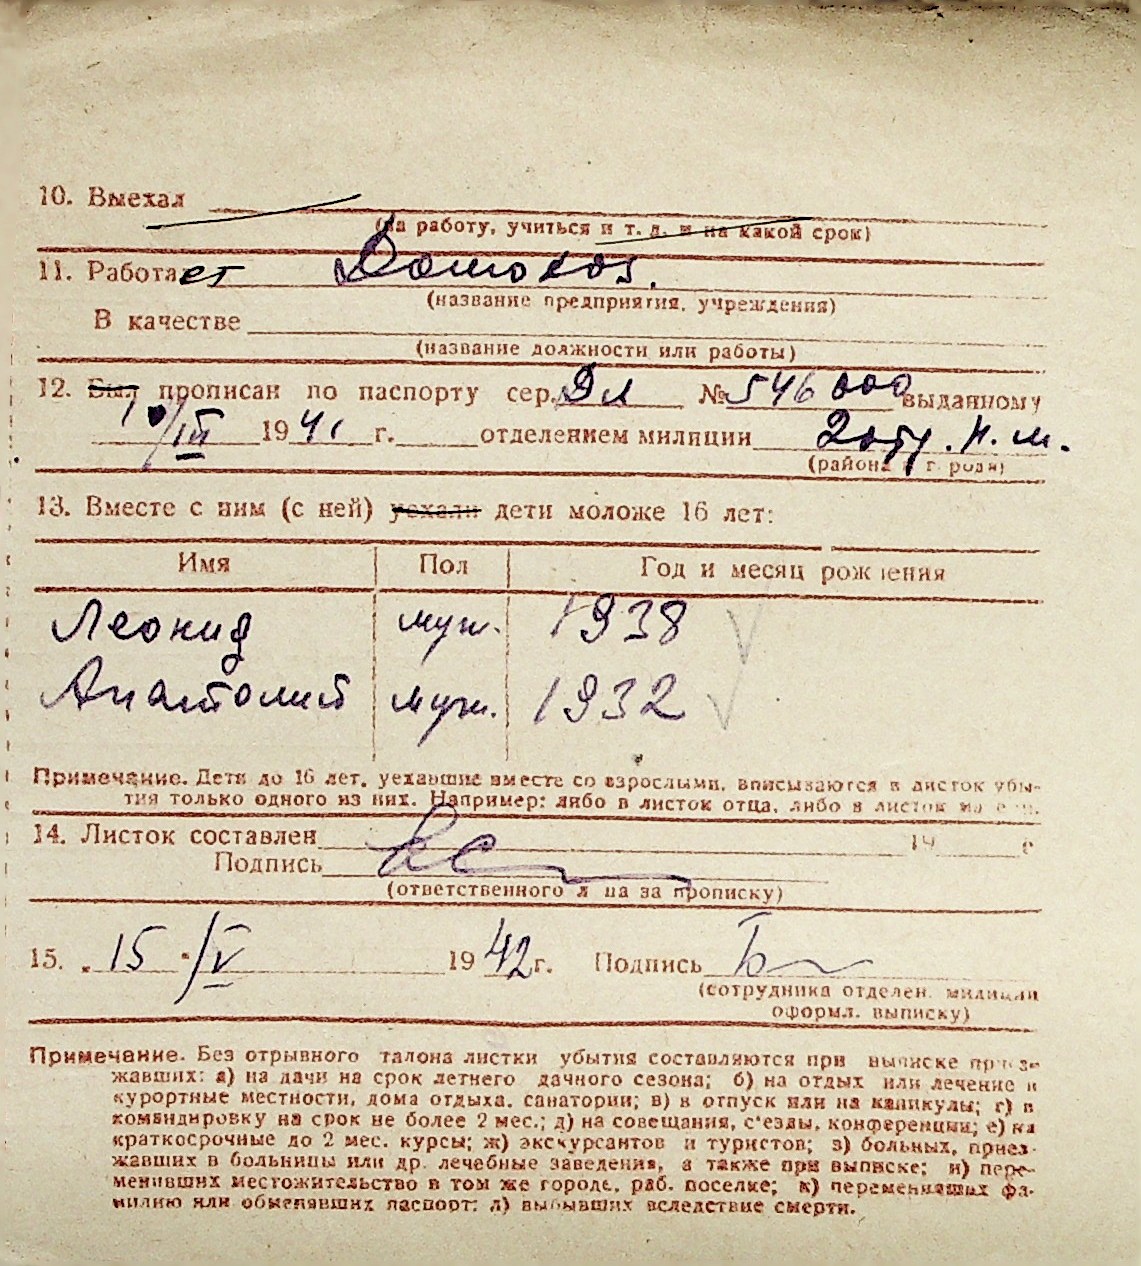 10. Выехал
(на работу, учиться и т. д. и на какой срок)
11. Работает Домохоз.
(название предприятия, учреждения)
В качестве
(название должности или работы)
12. Был прописан по паспорту сер. Дл № 546000 выданному
10/III 1941 г. отделением милиции 2 отд. Н. м.
(района г. рода)
13. Вместе с ним (с ней) уехали дети моложе 16 лет:
Имя Пол Год и месяц рождения
Леонид муж. 1938
Анатолий муж. 1932
Примечание. Дети до 16 лет, уехавшие вместе со взрослыми, вписываются в листок убы-
тия только одного из них. Например: либо в листок отца, либо в листок
14. Листок составлен 19 г
Подпись
(ответственного л ца за прописку)
15. 15/V 1942 г. Подпись
(сотрудника отделен. милиции
оформл. выписку)
Примечание. Без отрывного талона листки убытия составляются при выписке приез-
жавших: а) на дачи на срок летнего дачного сезона; б) на отдых или лечение в
курортные местности, дома отдыха, санатории; в) в отпуск или на каникулы; г) в
командировку на срок не более 2 мес.; д) на совещания, с'езды, конференции; е) на
краткосрочные до 2 мес. курсы; ж) экскурсантов и туристов; з) больных, приез-
жавших в больницы или др. лечебные заведения, а также при выписке; и) пере-
менивших местожительство в том же городе, раб. поселке; к) переменивших фа-
милию или обменявших паспорт; л) выбывших вследствие смерти.